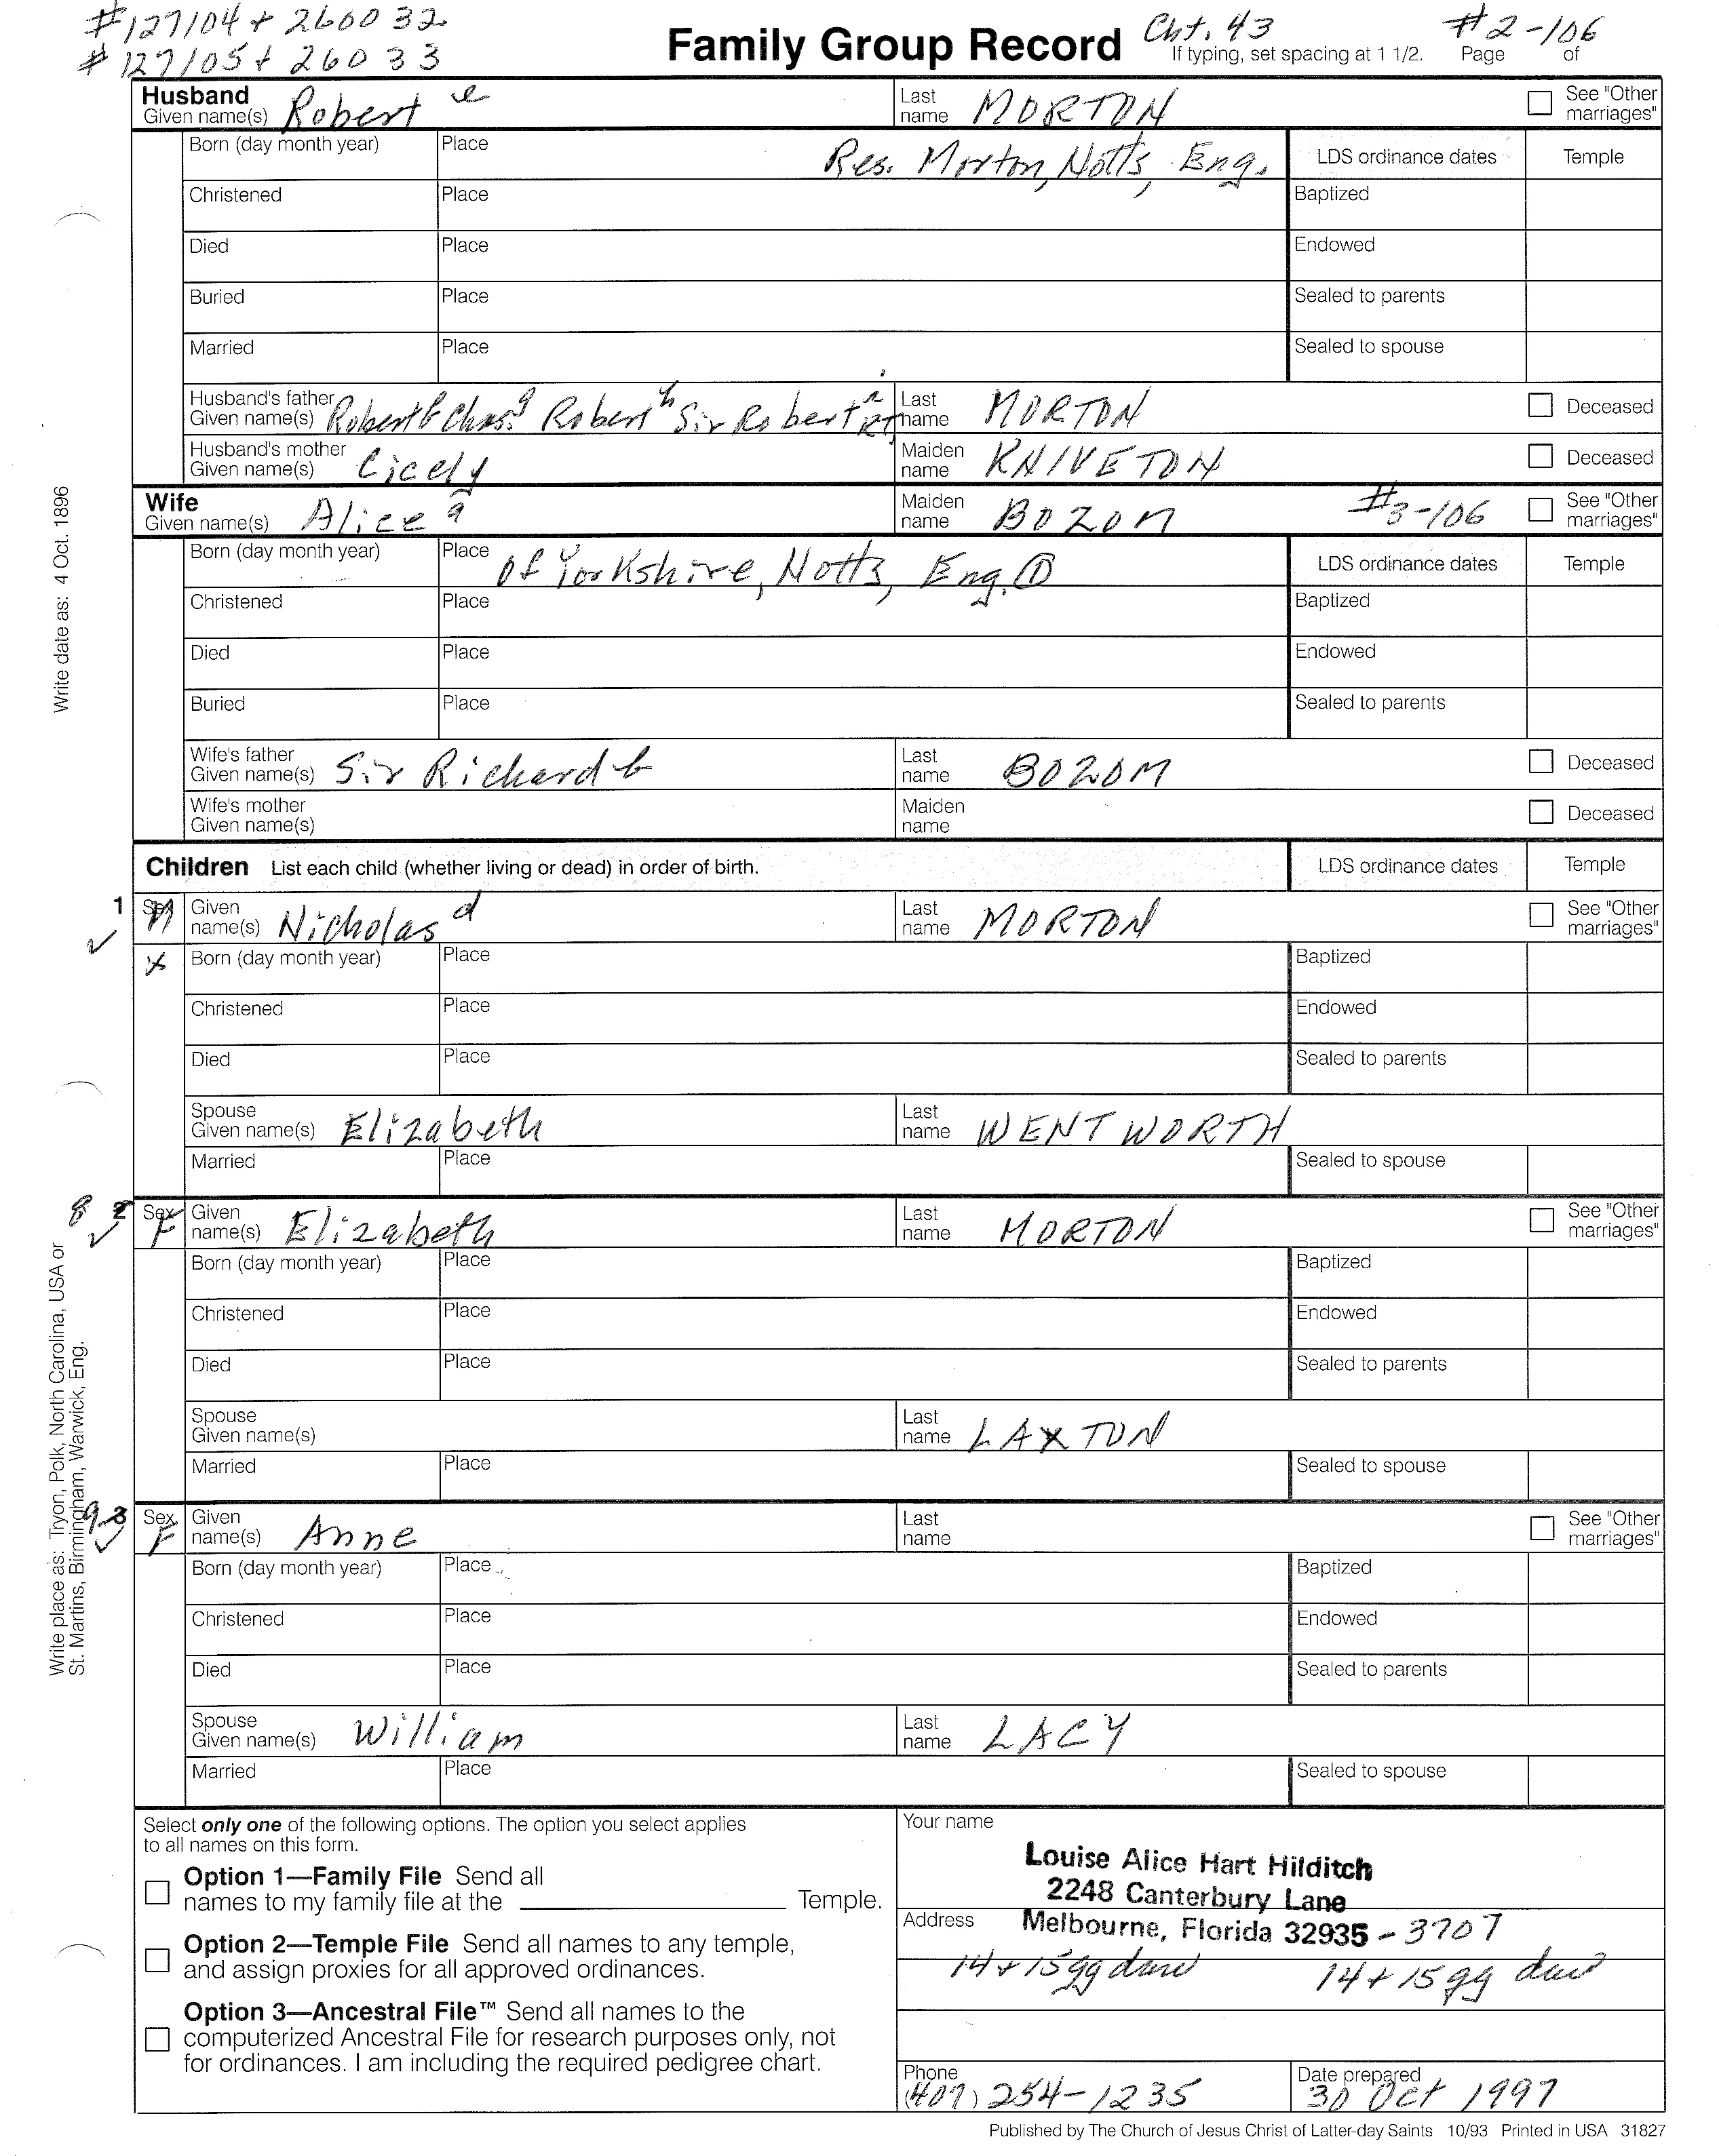 #127104 + 260032 Cht. 43 #2-106
#127105 + 26033 Family Group Record If typing, set spacing at 1 1/2. Page of
Husband
Given name(s) Robert e Last name MORTON See "Other marriages"
Born (day month year) Place Res. Morton, Notts, Eng. LDS ordinance dates Temple
Christened Place Baptized
Died Place Endowed
Buried Place Sealed to parents
Married Place Sealed to spouse
Husband's father
Given name(s) Robert f Chas. g Robert h Sir Robert Last name MORTON Deceased
Husband's mother
Given name(s) Cicely Maiden name KNIVETON Deceased
Wife
Given name(s) Alice a Maiden name BOZOM #3-106 See "Other marriages"
Born (day month year) Place Of Yorkshire, Notts, Eng. D LDS ordinance dates Temple
Christened Place Baptized
Died Place Endowed
Buried Place Sealed to parents
Wife's father
Given name(s) Sir Richard b Last name BOZOM Deceased
Wife's mother
Given name(s) Maiden name Deceased
Children List each child (whether living or dead) in order of birth. LDS ordinance dates Temple
1 Sex M Given name(s) Nicholas d Last name MORTON See "Other marriages"
x Born (day month year) Place Baptized
Christened Place Endowed
Died Place Sealed to parents
Spouse
Given name(s) Elizabeth Last name WENTWORTH
Married Place Sealed to spouse
8 2 Sex F Given name(s) Elizabeth Last name MORTON See "Other marriages"
Born (day month year) Place Baptized
Christened Place Endowed
Died Place Sealed to parents
Spouse
Given name(s) Last name LAXTON
Married Place Sealed to spouse
9 3 Sex F Given name(s) Anne Last name See "Other marriages"
Born (day month year) Place Baptized
Christened Place Endowed
Died Place Sealed to parents
Spouse
Given name(s) William Last name LACY
Married Place Sealed to spouse
Write date as: 4 Oct. 1896
Write place as: Tryon, Polk, North Carolina, USA or
St. Martins, Birmingham, Warwick, Eng.
Select only one of the following options. The option you select applies
to all names on this form.
Option 1—Family File Send all
names to my family file at the Temple.
Option 2—Temple File Send all names to any temple,
and assign proxies for all approved ordinances.
Option 3—Ancestral File™ Send all names to the
computerized Ancestral File for research purposes only, not
for ordinances. I am including the required pedigree chart.
Your name
Louise Alice Hart Hilditch
2248 Canterbury Lane
Address Melbourne, Florida 32935-3707
14+15 gg dau 14+15 gg dau
Phone (407) 254-1235 Date prepared 30 Oct 1997
Published by The Church of Jesus Christ of Latter-day Saints 10/93 Printed in USA 31827